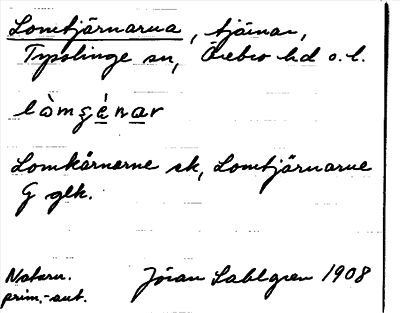 Lomtjärnarna, tjärnar,
Tysslinge sn, Örebro hd o. l.
Lomkärnarne ek, Lomtjärnarne
G glk.
Naturn.
prim.-aut.
Jöran Sahlgren 1908